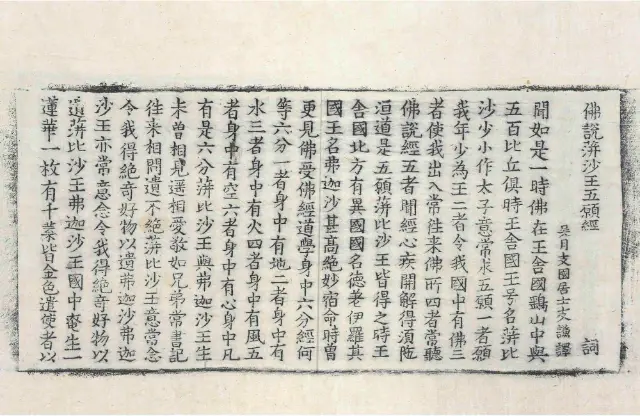 佛說蓱沙王五願經 詞
吳月支國居士支謙譯
聞如是一時佛在王舍國鷄山中與
五百比丘俱時王舍國王号名蓱比
沙沙少小作太子意常求五願一者願
我年少為王二者令我國中有佛三
者使我出入常往來佛所四者常聽
佛說經五者聞經心疾開解得須陁
洹道是五願蓱比沙王皆得之時王
舍國北方有異國國名德差伊羅其
國王名弗迦沙甚高絶妙宿命時曾
更見佛受佛經道學身中六分經何
等六分一者身中有地二者身中有
水三者身中有火四者身中有風五
者身中有空六者身中有心身中凡
有是六分蓱比沙王與弗迦沙王生
未曾相見遥相愛敬如兄弟常書記
往來相問遺不絶蓱比沙王意常念
令我得絶奇好物以遺弗迦沙弗迦
沙王亦常意念令我得絶奇好物以
遺蓱比沙王弗迦沙王國中奄生一
蓮華一枚有千葉皆金色遣使者以